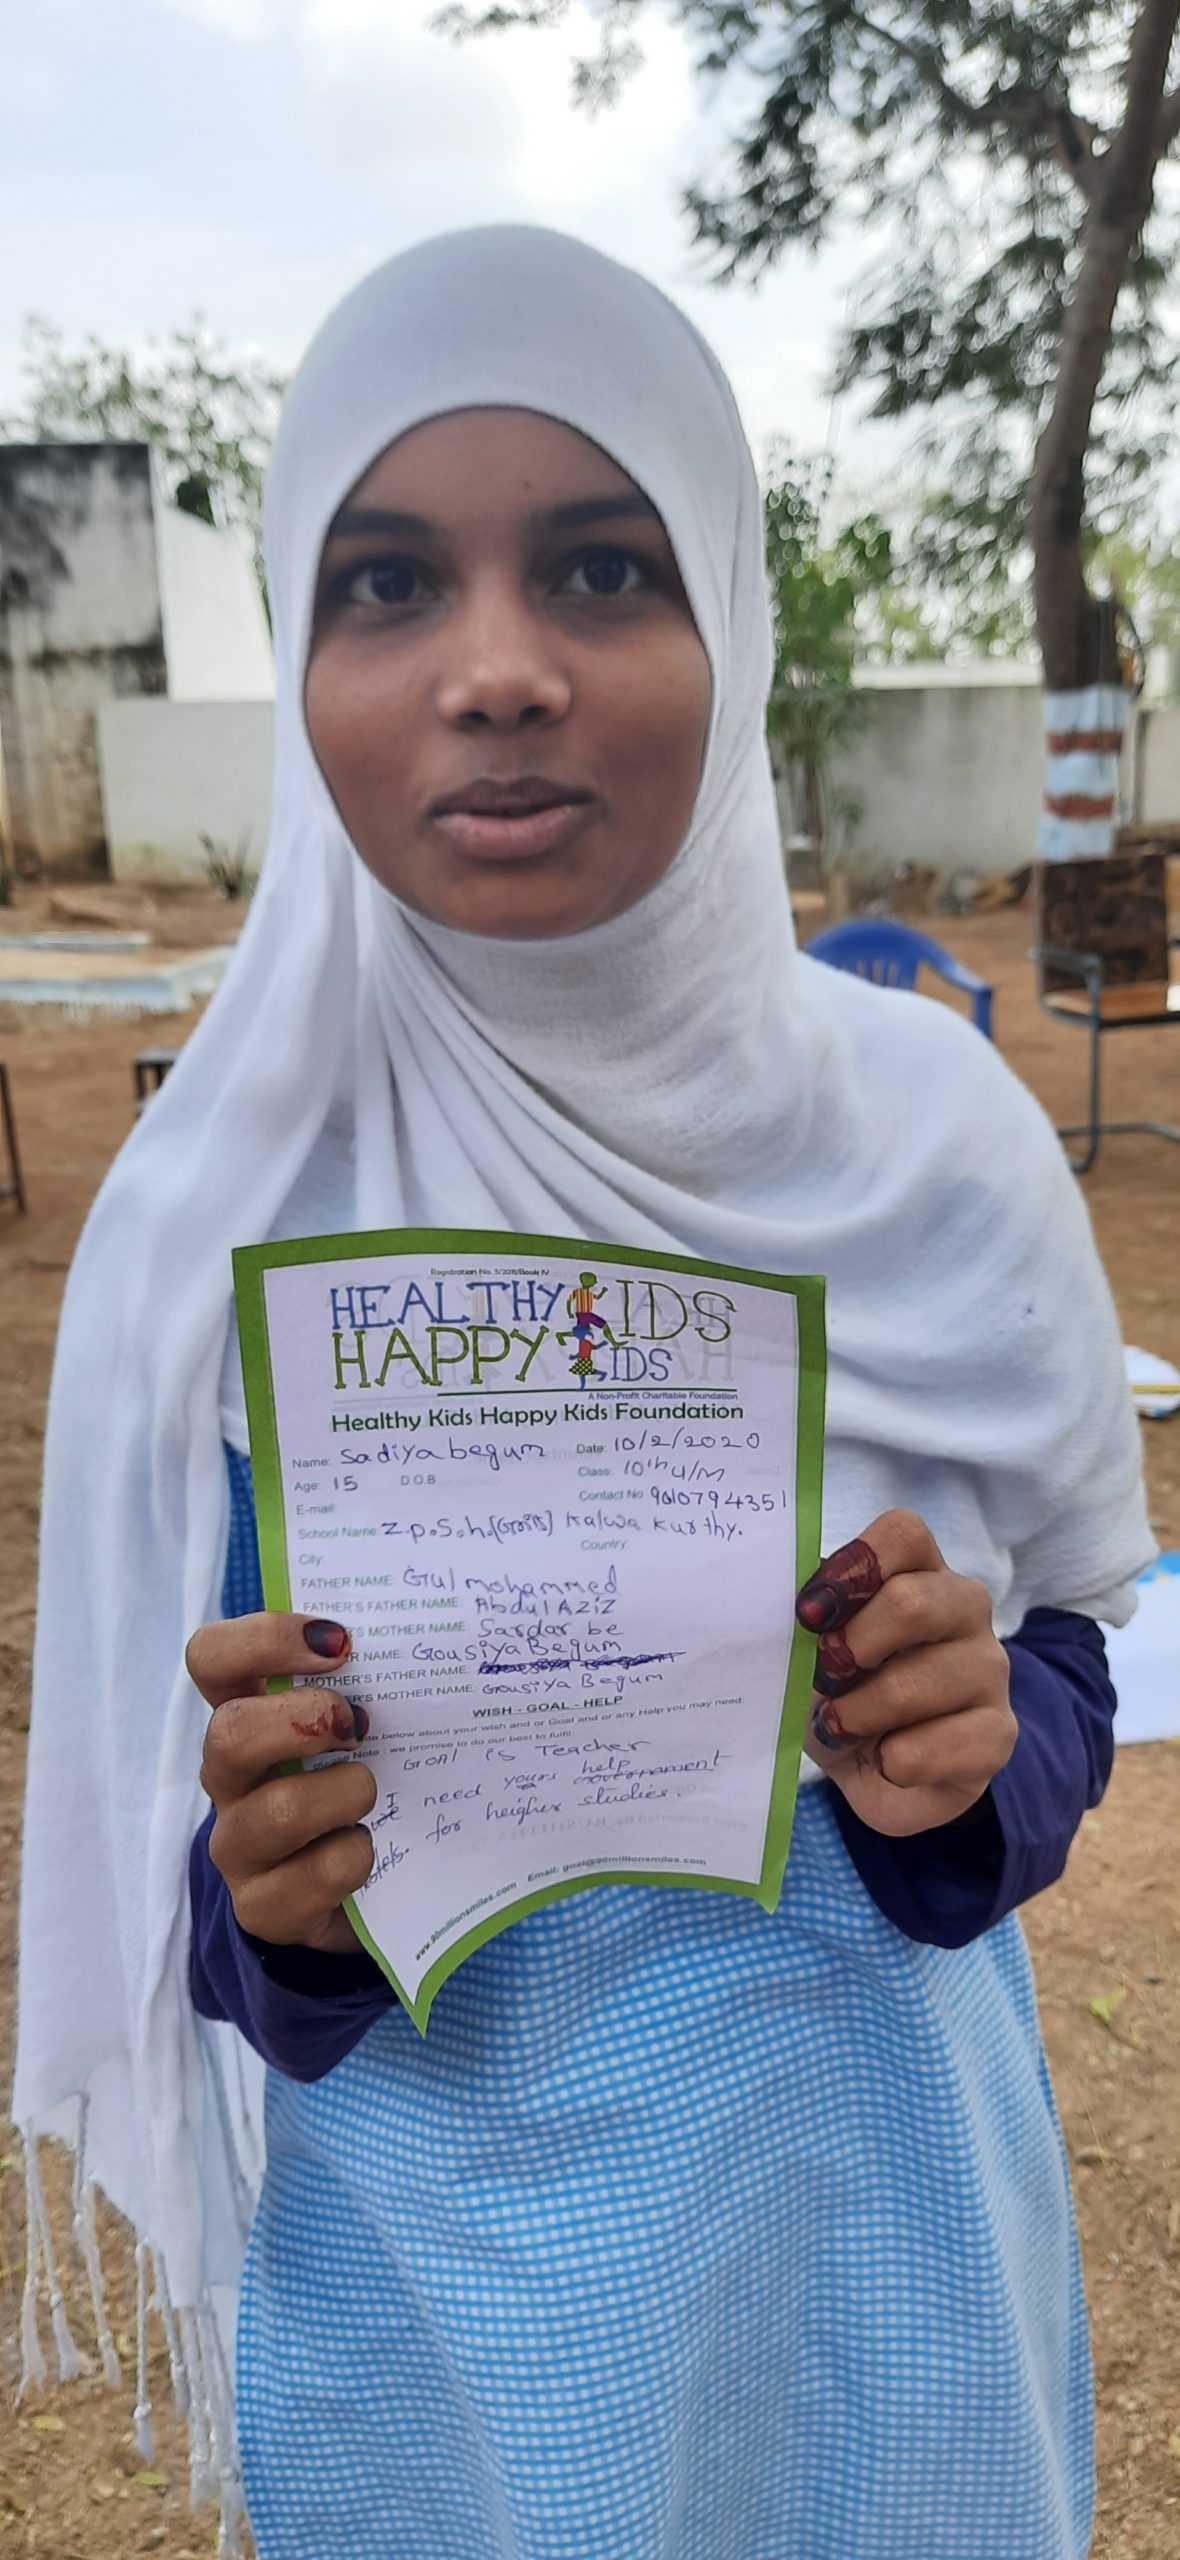 Registration No. 5/2011/Book IV
HEALTHY KIDS
HAPPY KIDS
A Non-Profit Charitable Foundation
Healthy Kids Happy Kids Foundation
Name: Sadiya begum Date: 10/2/2020
Age: 15 D.O.B Class: 10th U/M
E-mail: Contact No 9010794351
School Name: Z.p.S.h.[Girls] Kalwa Kurthy.
City: Country:
FATHER NAME: Gul mohammed
FATHER'S FATHER NAME: Abdul AZIZ
'S MOTHER NAME: Sardar be
R NAME: Gousiya Begum
MOTHER'S FATHER NAME:
R'S MOTHER NAME: Gousiya Begum
WISH - GOAL - HELP
te below about your wish and or Goal and or any Help you may need:
please Note : we promise to do our best to fulfil:
GOAl is Teacher
I need yours help
for heigher studies.
www.90millionsmiles.com Email: goal@90millionsmiles.com